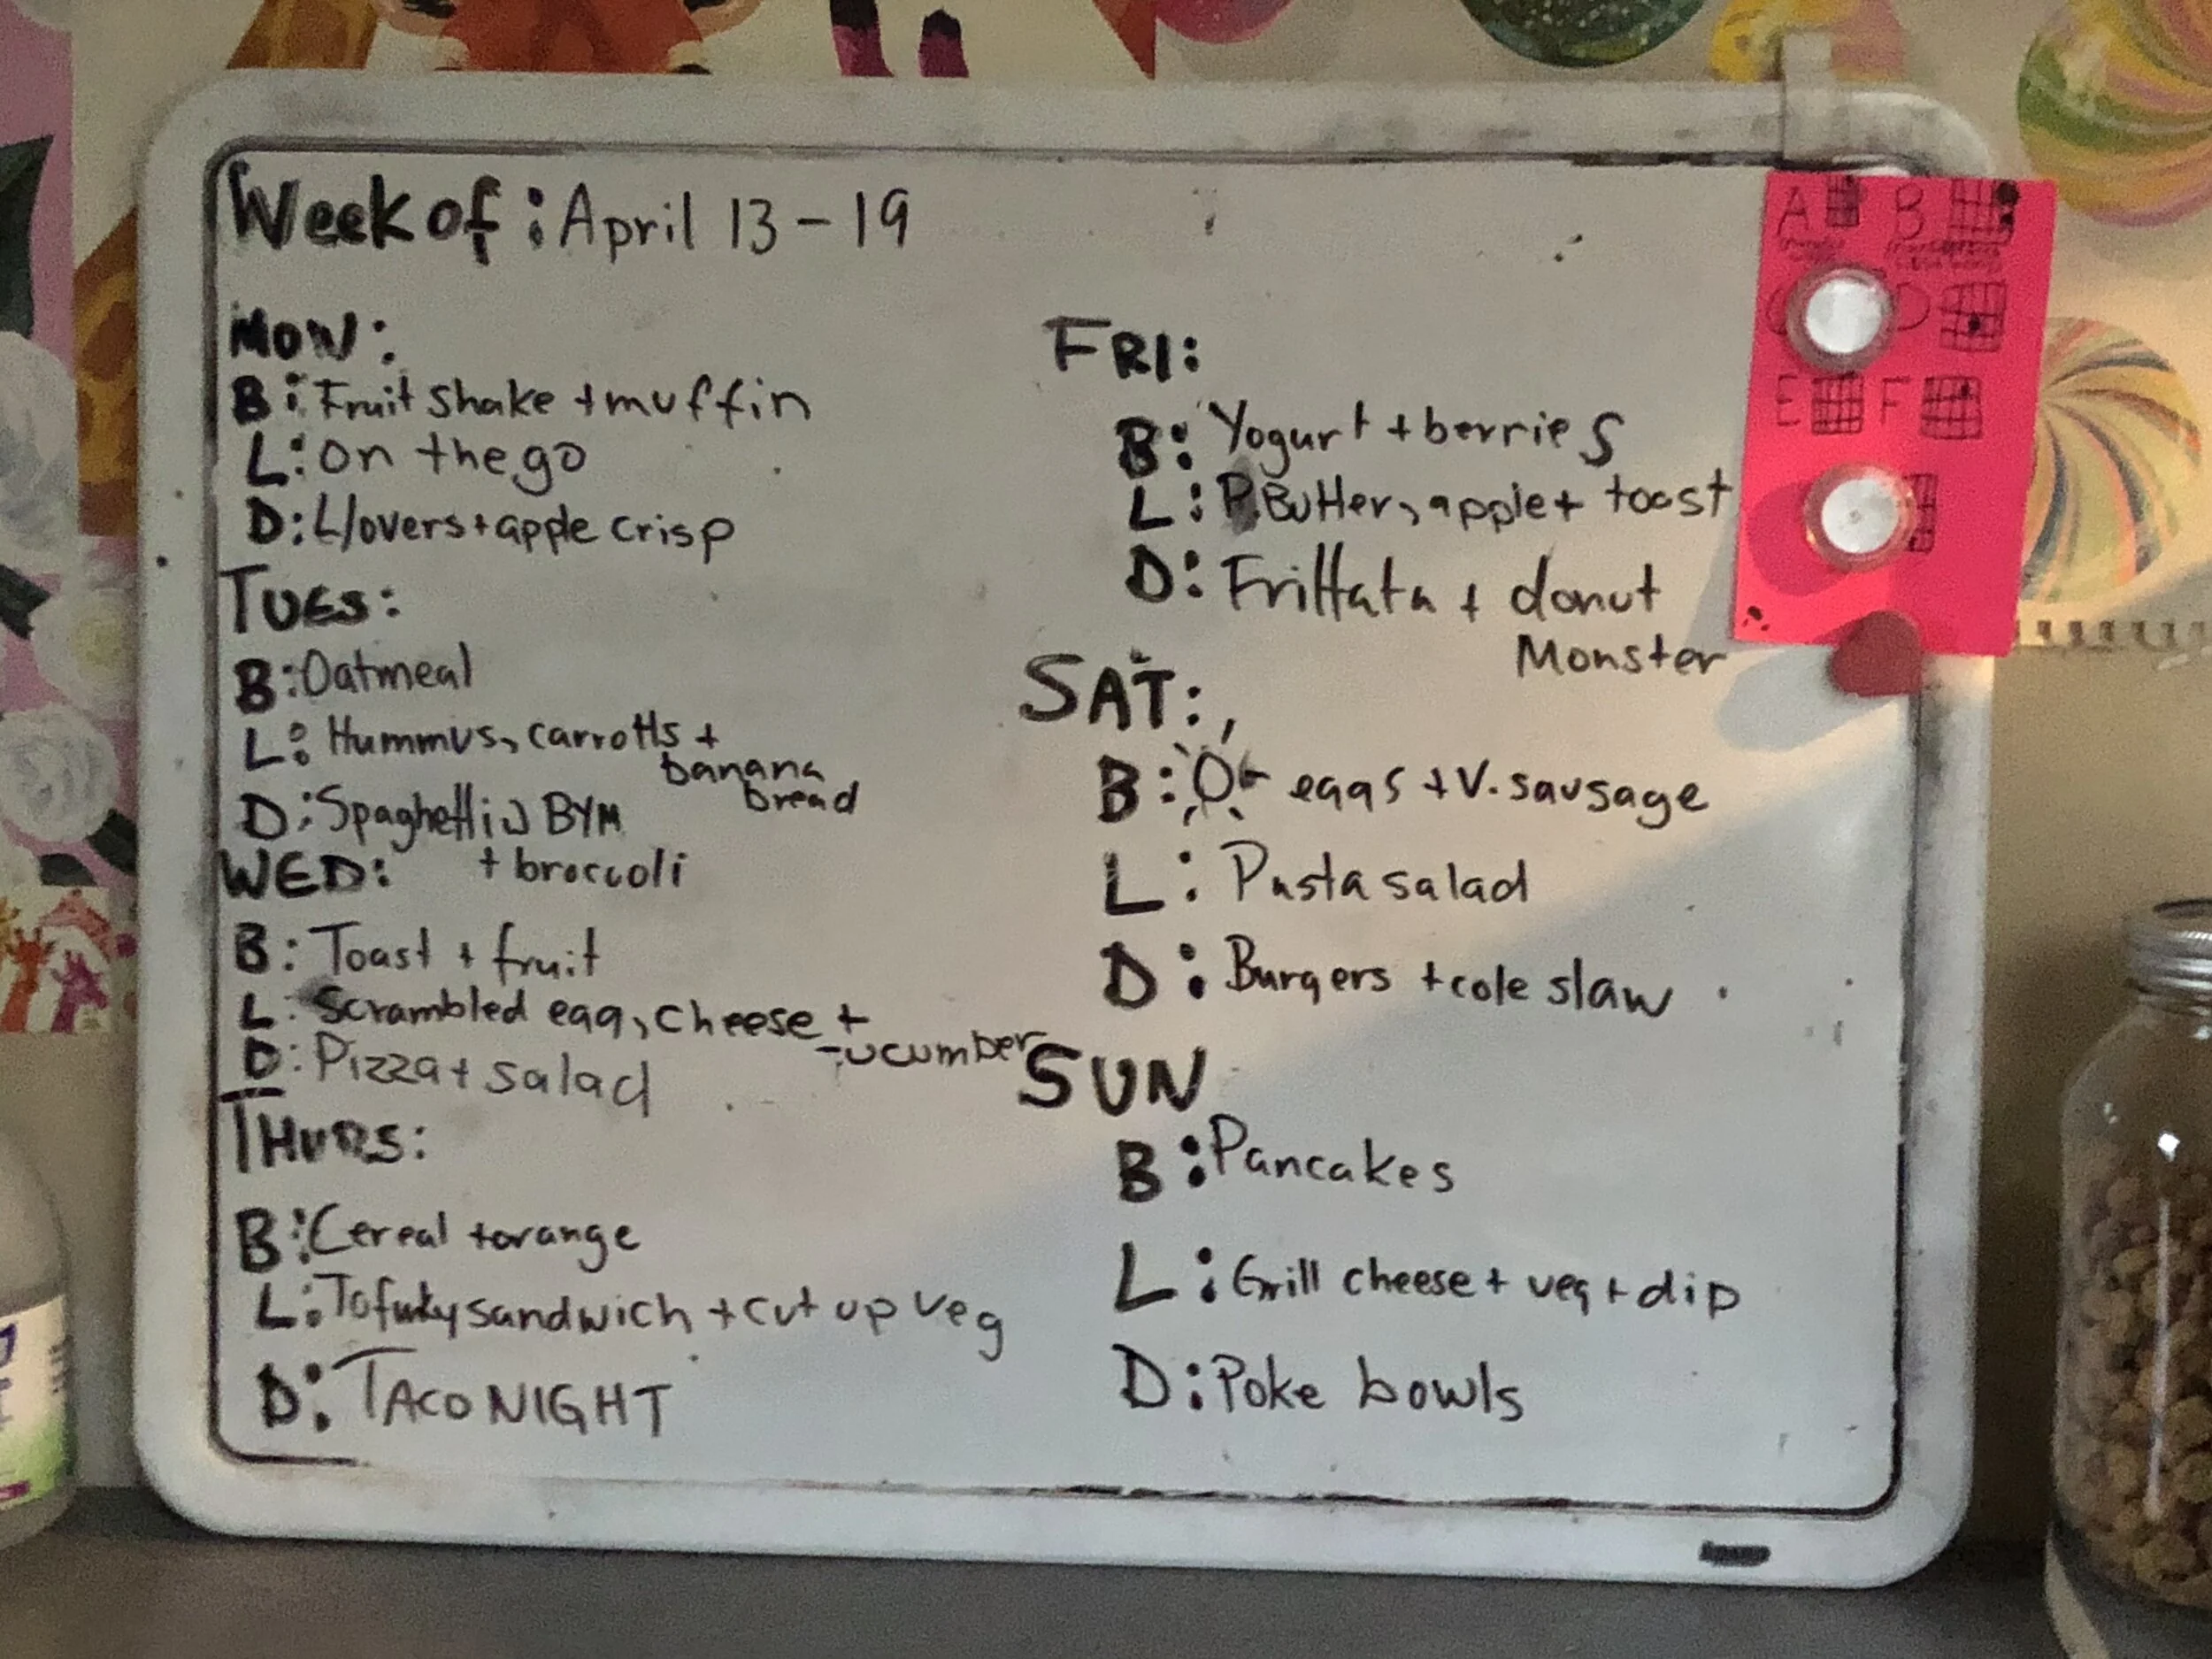 Week of: April 13 - 19
MON:
B: Fruit shake + muffin
L: On the go
D: L/overs + apple crisp
TUES:
B: Oatmeal
L: Hummus, carrotts +
banana
bread
D: Spaghetti w BYM
+ broccoli
WED:
B: Toast + fruit
L: Scrambled egg, cheese +
cucumber
D: Pizza + salad
THURS:
B: Cereal + orange
L: Tofurky sandwich + cut up veg
D: TACO NIGHT
FRI:
B: Yogurt + berries
L: P. Butter, apple + toast
D: Frittata + donut
Monster
SAT:
B: eggs + V. sausage
L: Pasta salad
D: Burgers + cole slaw
SUN
B: Pancakes
L: Grill cheese + veg + dip
D: Poke bowls
A B
D
E F